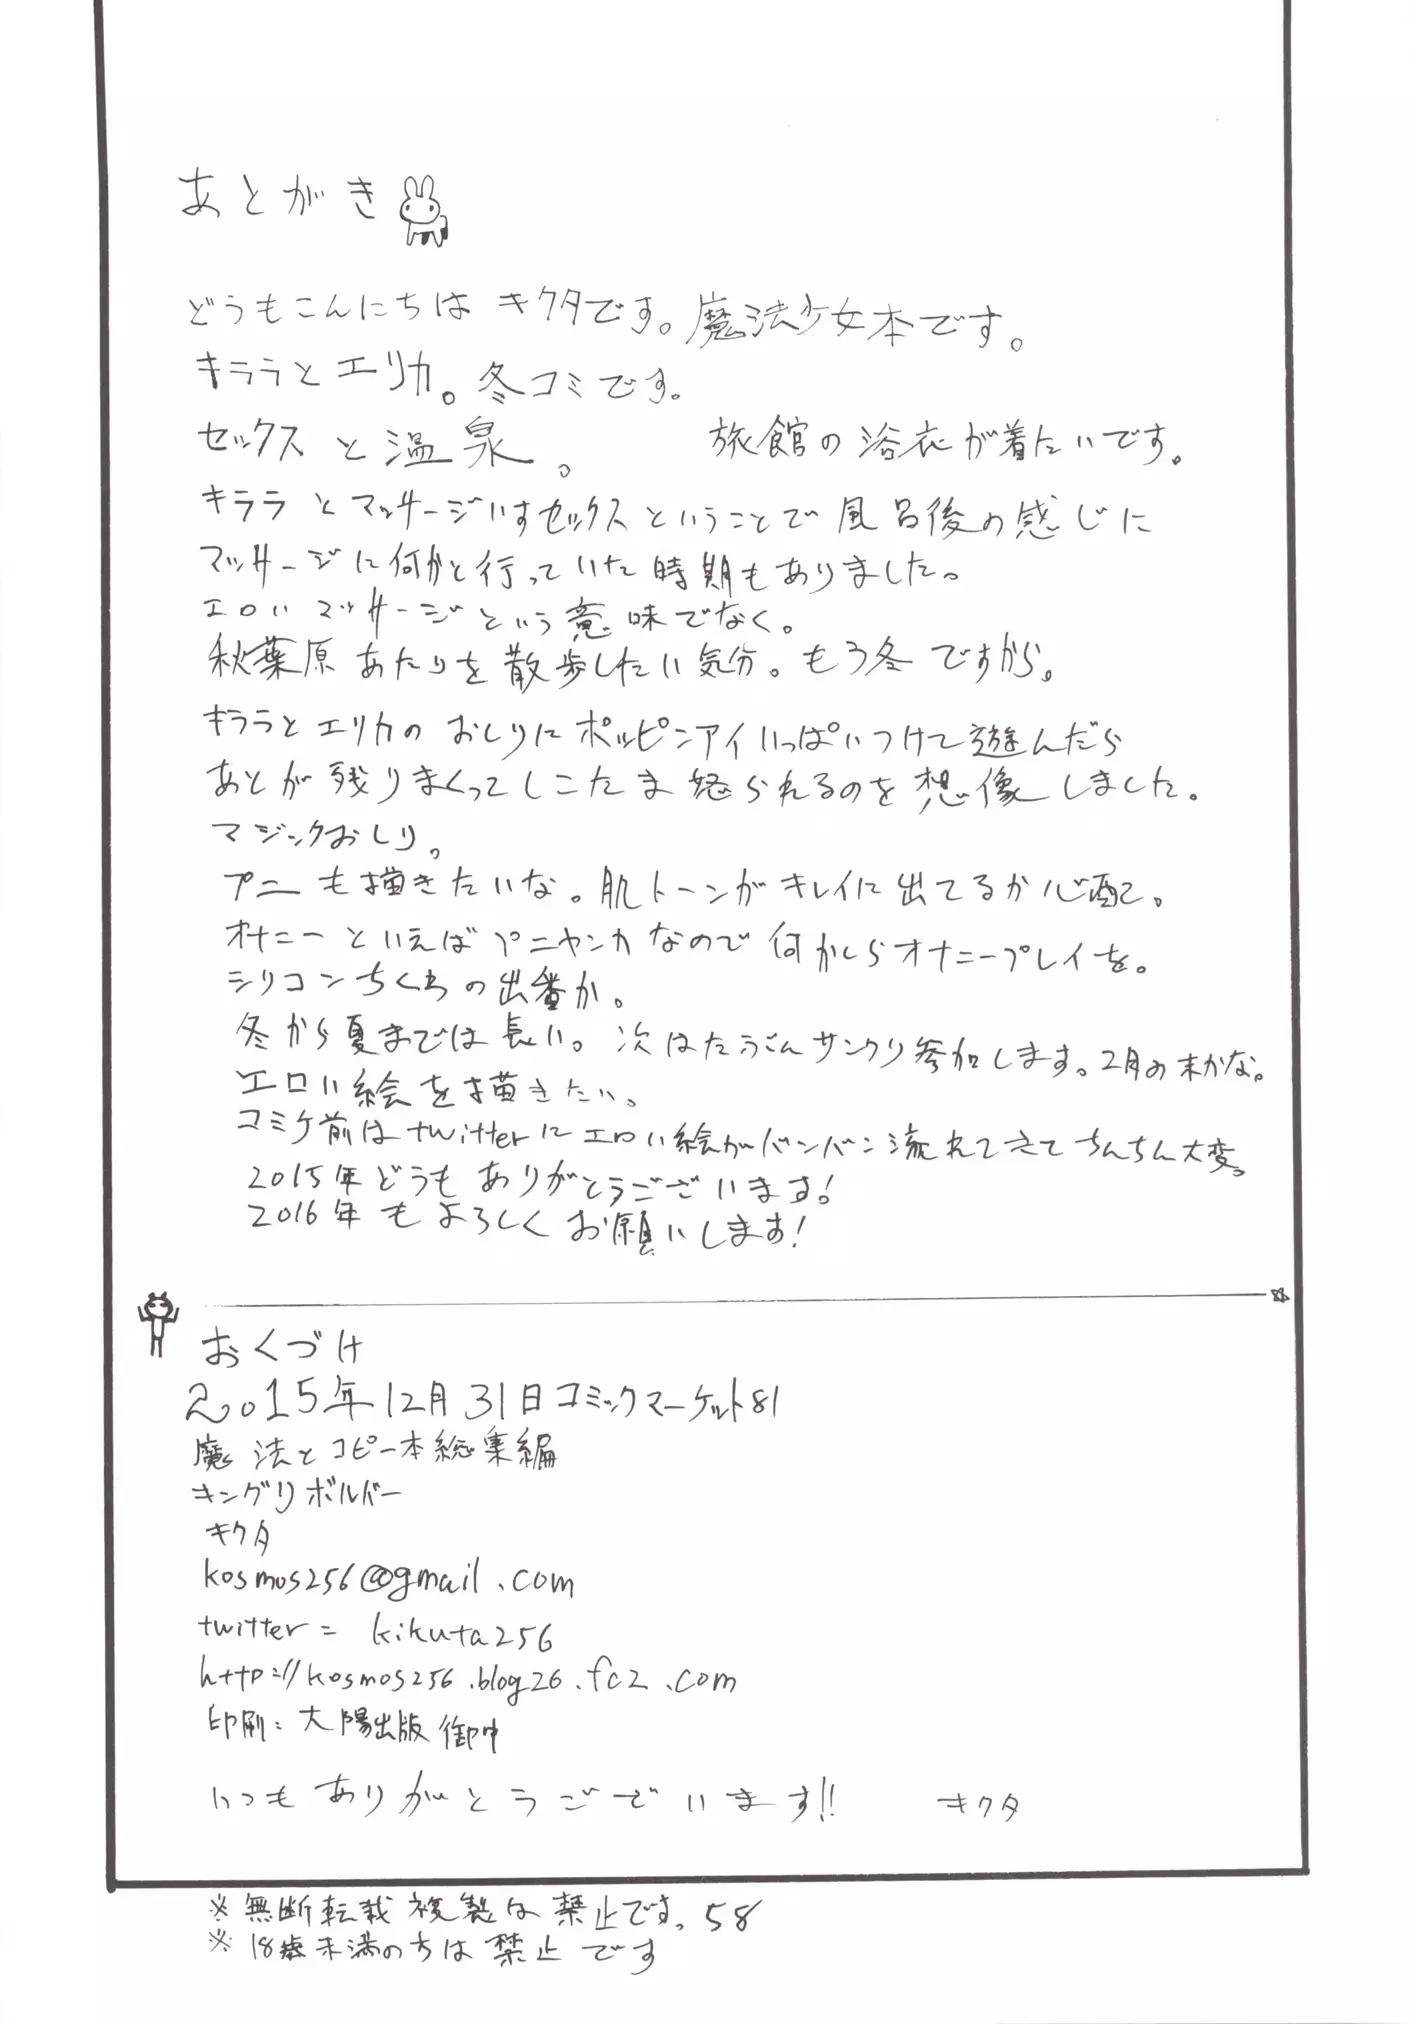 あとがき
どうもこんにちは キクタです。魔法少女本です。
キララとエリカ。冬コミです。
セックスと温泉。 旅館の浴衣が着たいです。
キララとマッサージいすセックスということで風呂後の感じに
マッサージに何かと行っていた時期もありました。
エロいマッサージという意味でなく。
秋葉原あたりを散歩したい気分。もう冬ですから。
キララとエリカのおしりにポッピンアイいっぱいつけて遊んだら
あとが残りまくってしこたま怒られるのを想像しました。
マジックおしり。
プニも描きたいな。肌トーンがキレイに出てるか心配。
オナニーといえばプニヤンカなので何かしらオナニープレイを。
シリコンちくわの出番か。
冬から夏までは長い。次はたぶんサンクリ参加します。2月の末かな。
エロい絵を描きたい。
コミケ前はtwitterにエロい絵がバンバン流れてきてちんちん大変。
2015年どうもありがとうございます!
2016年もよろしくお願いします!
おくづけ
2015年12月31日コミックマーケット81
魔法とコピー本総集編
キングリボルバー
キクタ
kosmos256@gmail.com
twitter= kikuta256
http://kosmos256.blog26.fc2.com
印刷:大陽出版 御中
いつもありがとうございます!! キクタ
※無断転載複製は禁止です。58
※18歳未満の方は禁止です